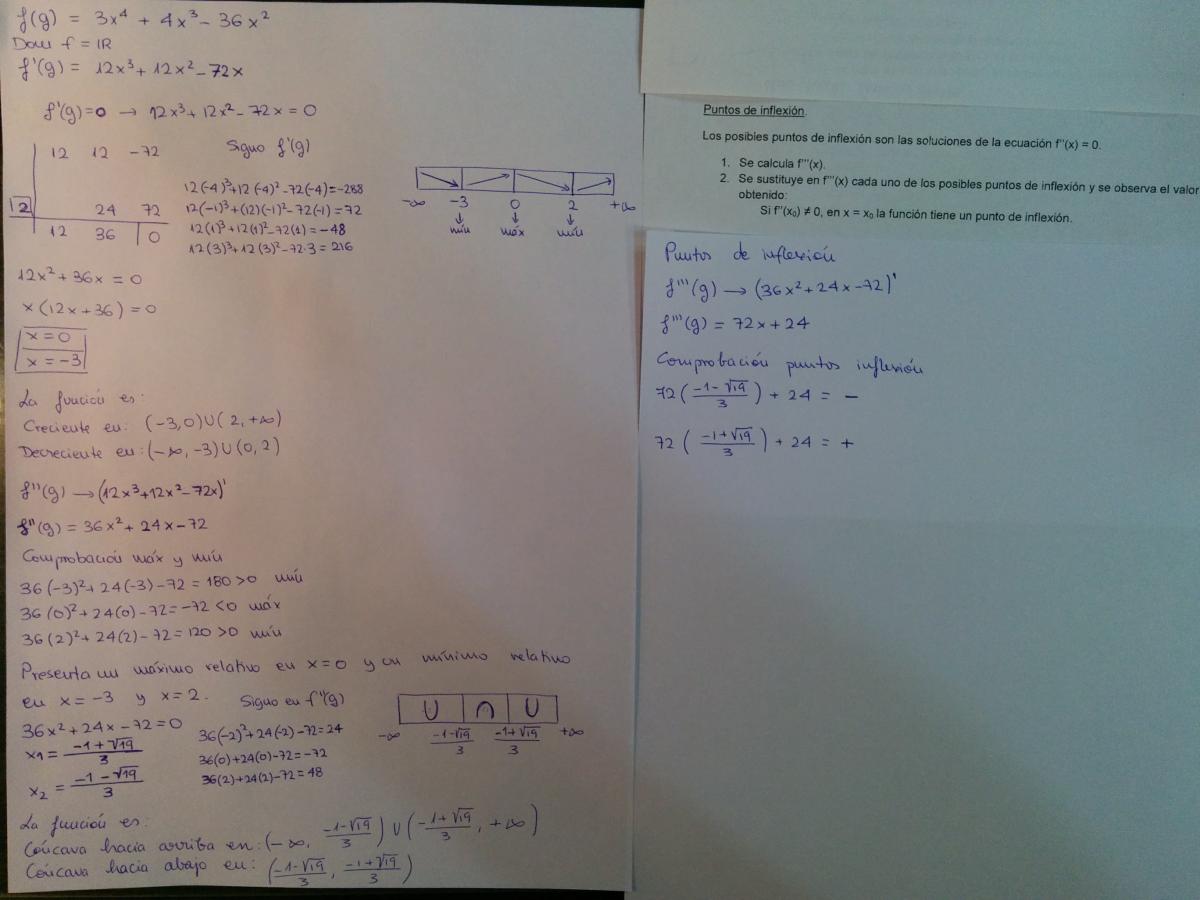 f(g) = 3x⁴ + 4x³ - 36x²
Dom f = IR
f'(g) = 12x³ + 12x² - 72x
f'(g)=0 → 12x³ + 12x² - 72x = 0
12 12 -72
2 24 72
12 36 0
Signo f'(g)
12(-4)³+12(-4)²-72(-4)=-288
12(-1)³+(12)(-1)²-72(-1)=72
12(1)³+12(1)²-72(1)=-48
12(3)³+12(3)²-72·3=216
-∞ -3 0 2 +∞
↓ ↓ ↓
mín máx mín
12x² + 36x = 0
x(12x+36) = 0
x=0
x=-3
La función es:
Creciente en: (-3,0)∪(2,+∞)
Decreciente en: (-∞,-3)∪(0,2)
f''(g) → (12x³+12x²-72x)'
f''(g) = 36x² + 24x - 72
Comprobación máx y mín
36(-3)²+24(-3)-72 = 180 >0 mín
36(0)²+24(0)-72=-72 <0 máx
36(2)²+24(2)-72=120 >0 mín
Presenta un máximo relativo en x=0 y un mínimo relativo
en x=-3 y x=2.
Signo en f''(g)
36x² + 24x - 72 = 0
x₁ = (-1+√19)/3
x₂ = (-1-√19)/3
36(-2)²+24(-2)-72=24
36(0)+24(0)-72=-72
36(2)+24(2)-72=48
∪ ∩ ∪
-∞ (-1-√19)/3 (-1+√19)/3 +∞
La función es:
Cóncava hacia arriba en: (-∞, (-1-√19)/3) ∪ ((-1+√19)/3, +∞)
Cóncava hacia abajo en: ((-1-√19)/3, (-1+√19)/3)
Puntos de inflexión.
Los posibles puntos de inflexión son las soluciones de la ecuación f''(x) = 0.
1. Se calcula f'''(x).
2. Se sustituye en f'''(x) cada uno de los posibles puntos de inflexión y se observa el valor
obtenido:
Si f''(x₀) ≠ 0, en x = x₀ la función tiene un punto de inflexión.
Puntos de inflexión
f'''(g) → (36x²+24x-72)'
f'''(g) = 72x + 24
Comprobación puntos inflexión
72((-1-√19)/3) + 24 = -
72((-1+√19)/3) + 24 = +